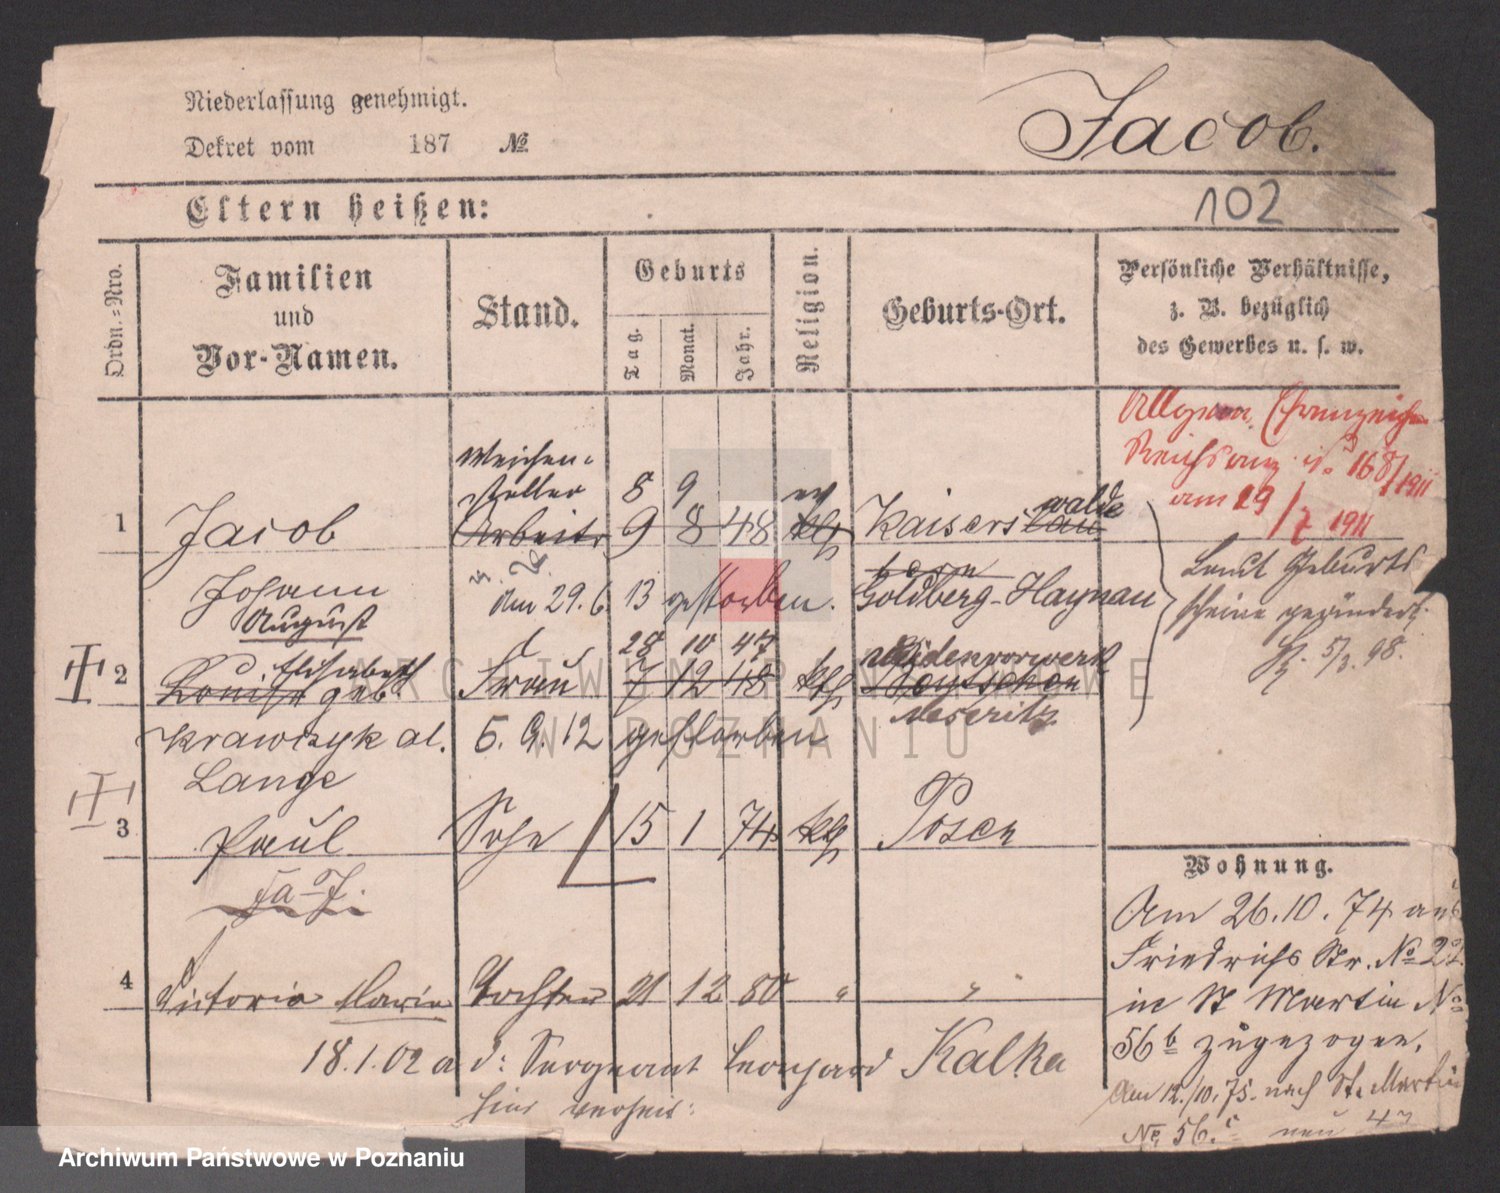 Niederlassung genehmigt.
Dekret vom 187 №
Jacob.
102
Eltern heißen:
Ordn.-Nro.
Familien
und
Vor-Namen.
Stand.
Geburts
Tag.
Monat.
Jahr.
Religion.
Geburts-Ort.
Persönliche Verhältnisse,
z. B. bezüglich
des Gewerbes u. s. w.
Reichsanz. 168/1911
am 29/7 1911
Weichen-
steller 8 9 ev walde
1 Jacob Arbeitr 9 8 48 kth Kaiserslau
Johann am 29.6.13 gestorben. Goldberg-Haynau
August
Laut Geburts
scheine geändert.
5/3. 98.
28 10 47
Elisabeth
2 Louise geb Frau 7 12 48 kth
Meseritz
Krawczyk al. 5. 9. 12 gestorben
Lange
3 Paul Sohn 15 1 74 kth Posen
4 Victoria Maria Tochter 21 12 80 " "
18.1.02 a d: Sergeant Leonhard Kalka
hier verheir:
Wohnung.
Am 26.10.74 aus
Friedrichs Str. No 22.
in St Martin No
56b zugezogen.
Am 12./10.75. nach St. Martin
No 56.c neu 47
Archiwum Państwowe w Poznaniu
ARCHIWUM PAŃSTWOWE
W POZNANIU